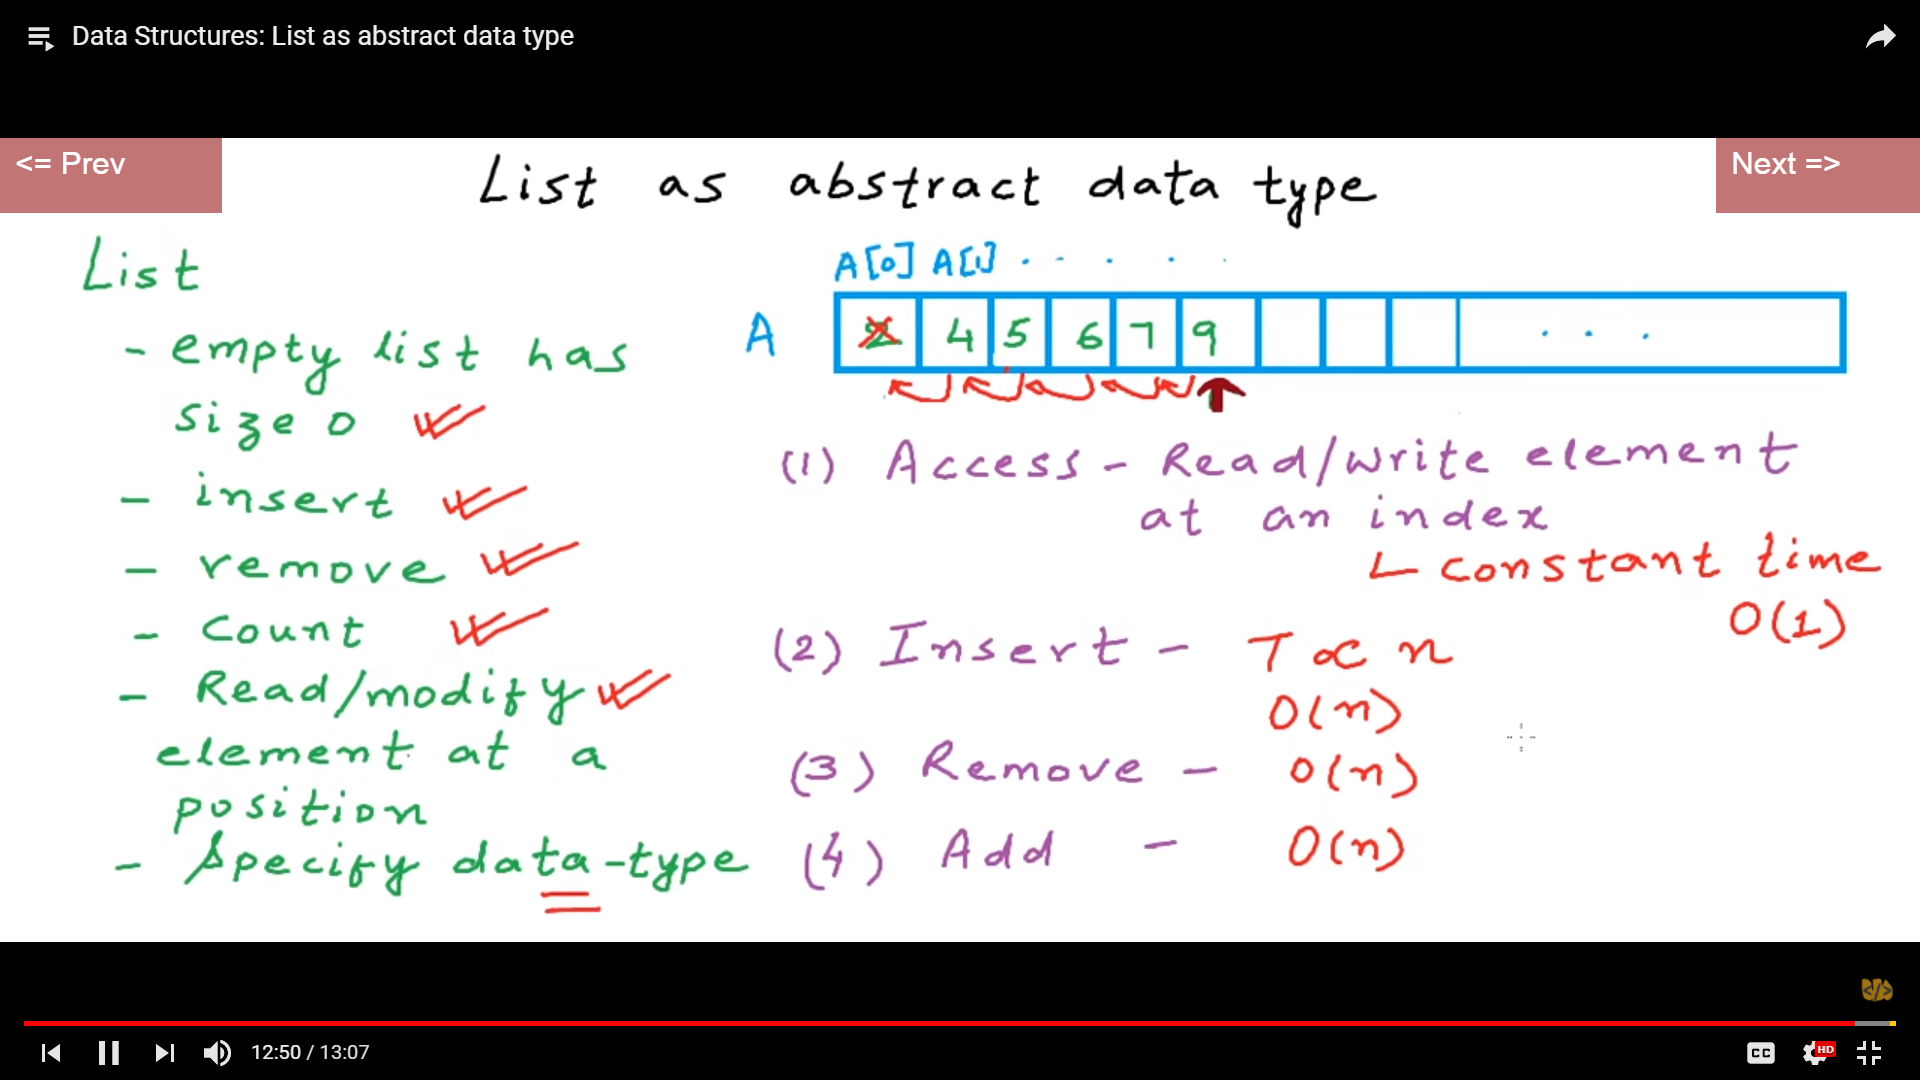 Data Structures: List as abstract data type
<= Prev
Next =>
List as abstract data type
List
- empty list has
size 0
- insert
- remove
- Count
- Read/modify
element at a
position
- Specify data-type
A[0] A[1] . . . . .
A
2 4 5 6 7 9 . . .
(1) Access - Read/Write element
at an index
constant time
O(1)
(2) Insert - T ∝ n
O(n)
(3) Remove - O(n)
(4) Add - O(n)
</>
12:50 / 13:07
CC
HD